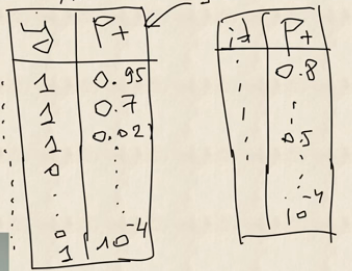 y P+
1 0.95
1 0.7
1 0.02
0
0
1 10^-4
id P+
0.8
0.5
10^-4